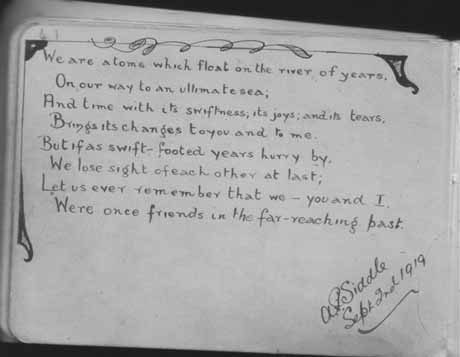 We are atoms which float on the river of years,
On our way to an ultimate sea;
And time with its swiftness; its joys; and its tears.
Brings its changes to you and to me.
But if as swift-footed years hurry by.
We lose sight of each other at last;
Let us ever remember that we - you and I.
Were once friends in the far-reaching past.
Siddle
Sept 2nd 1919